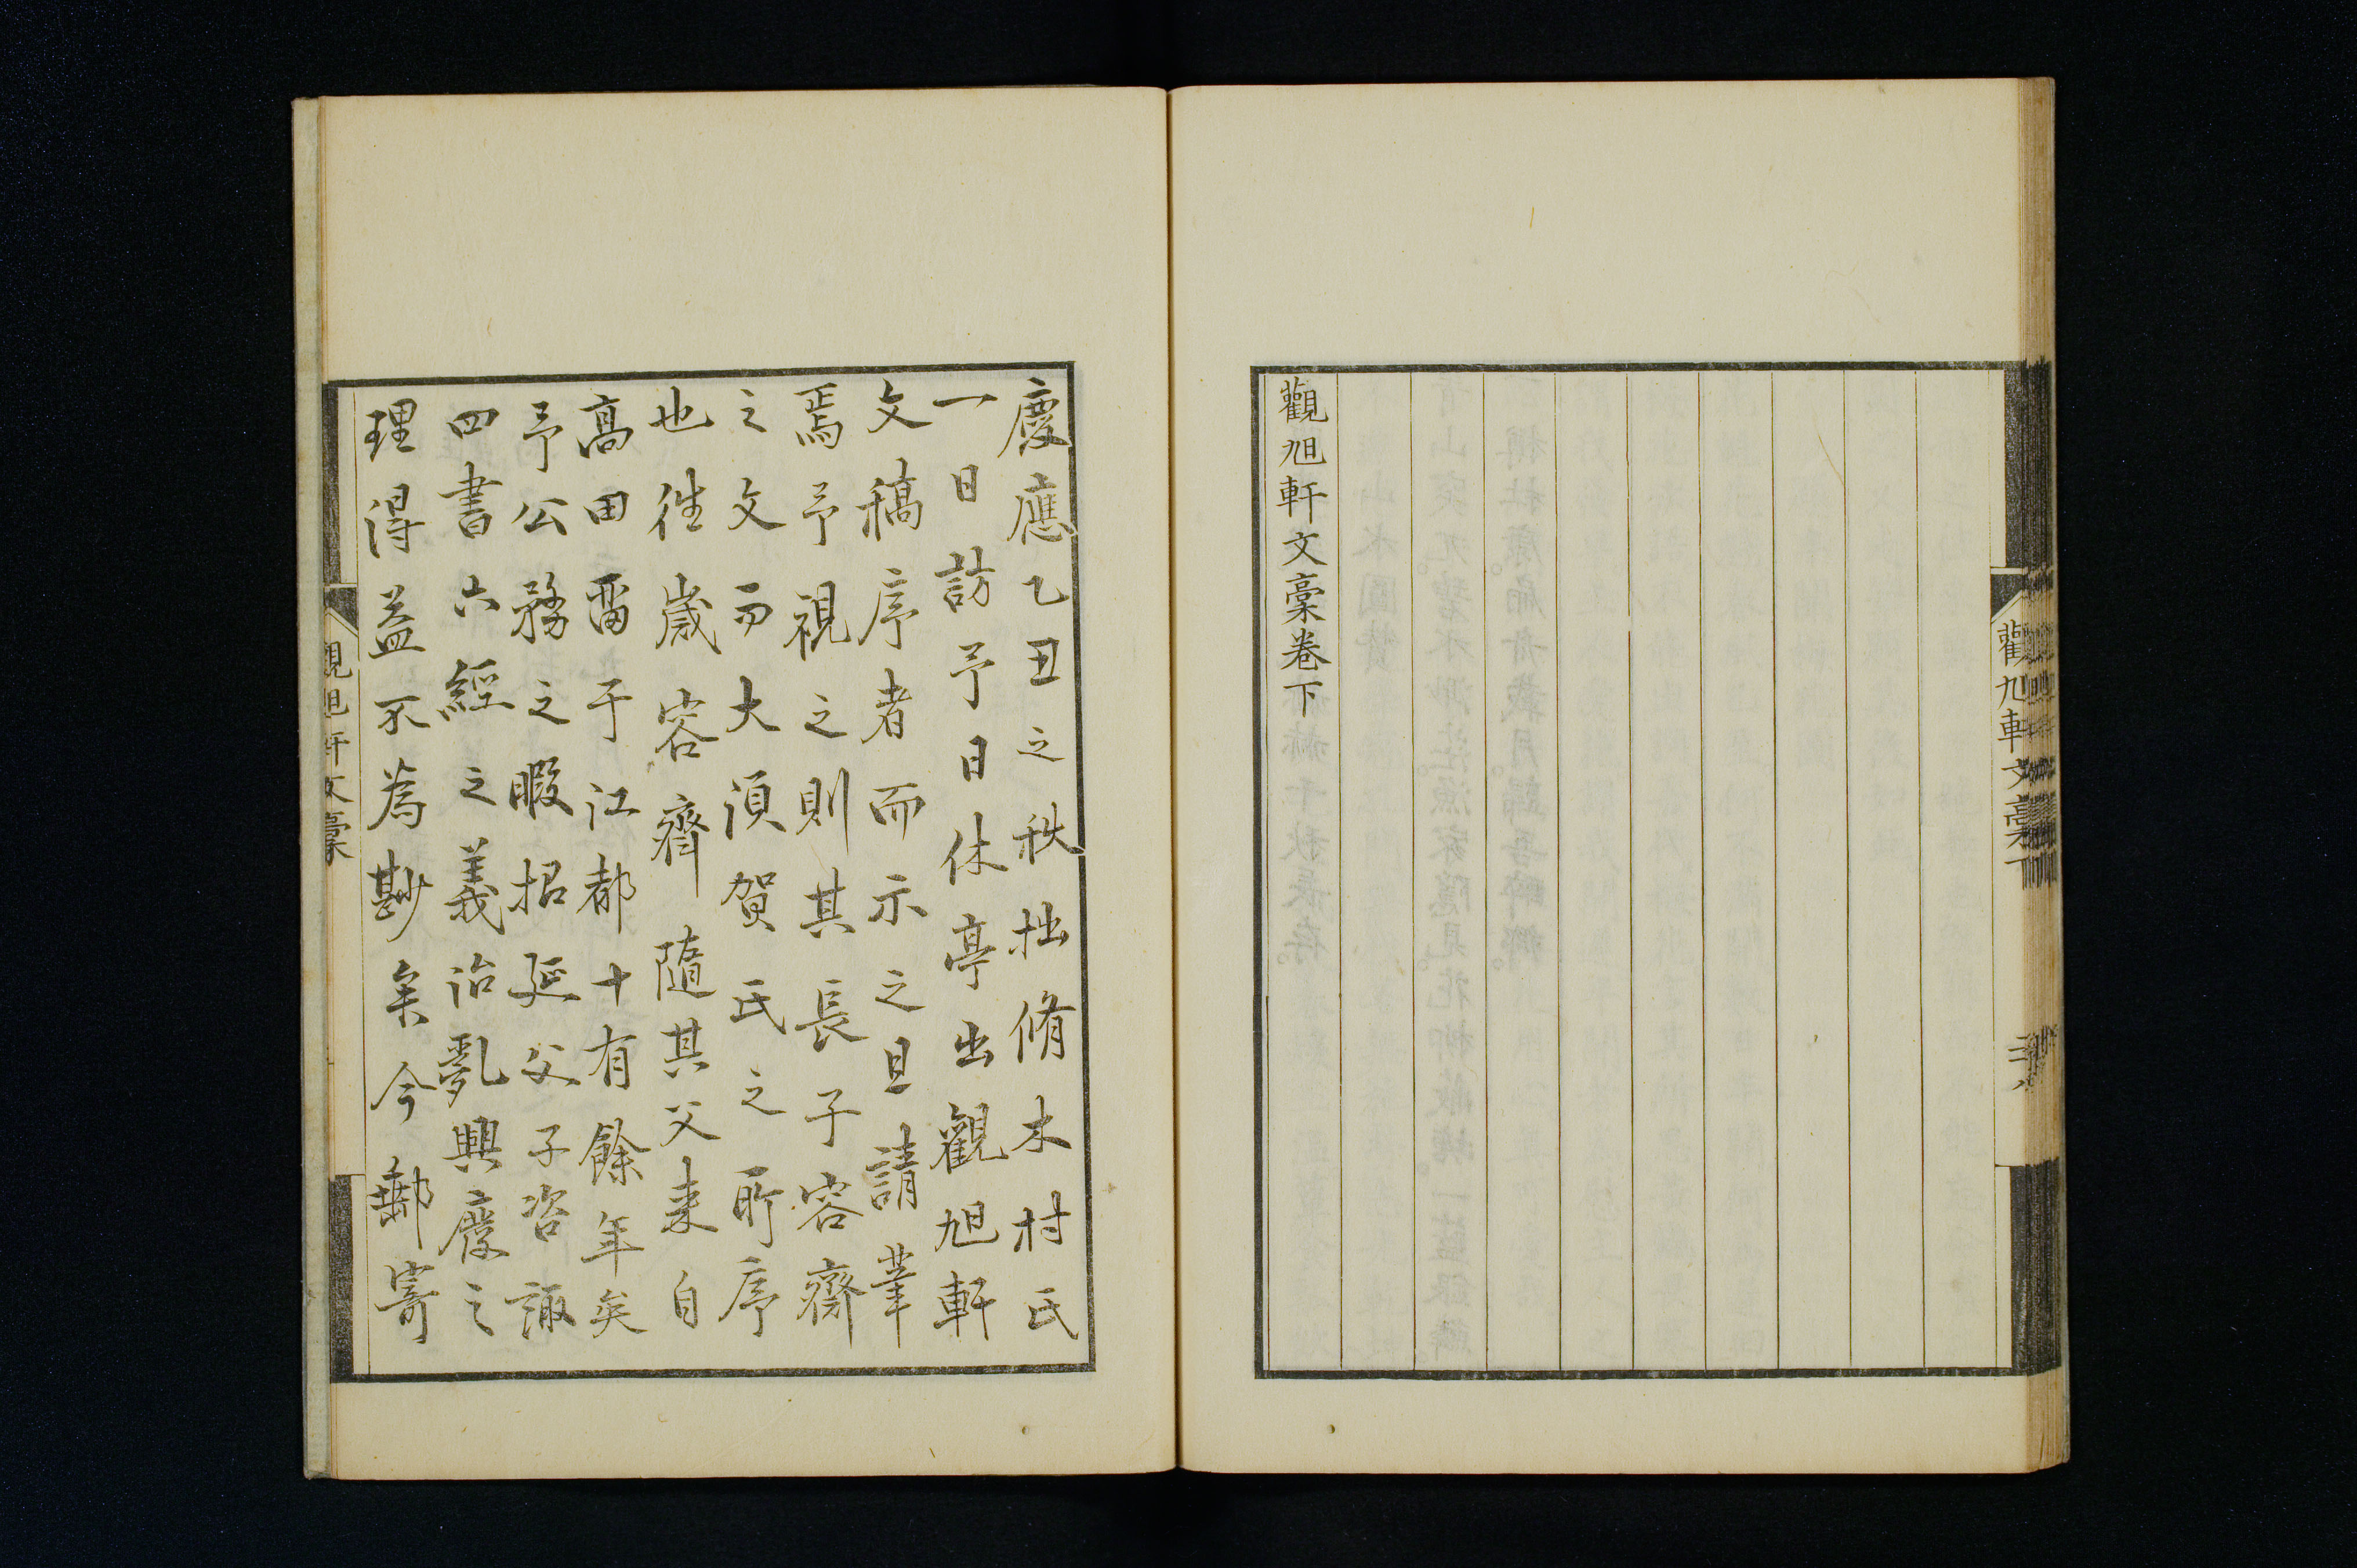 觀旭軒文稾下
二十八
觀旭軒文稾卷下
慶應乙丑之秋拙脩木村氏
一日訪予日休亭出觀旭軒
文稿序者而示之且請葦
焉予視之則其長子容齋
之文而大須賀氏之所序
也往歲容齊隨其父来自
髙田畱于江都十有餘年矣
予公務之暇招延父子咨諏
四書六經之義治亂興廢之
理得益不為尠矣今郵寄
觀旭軒文稾